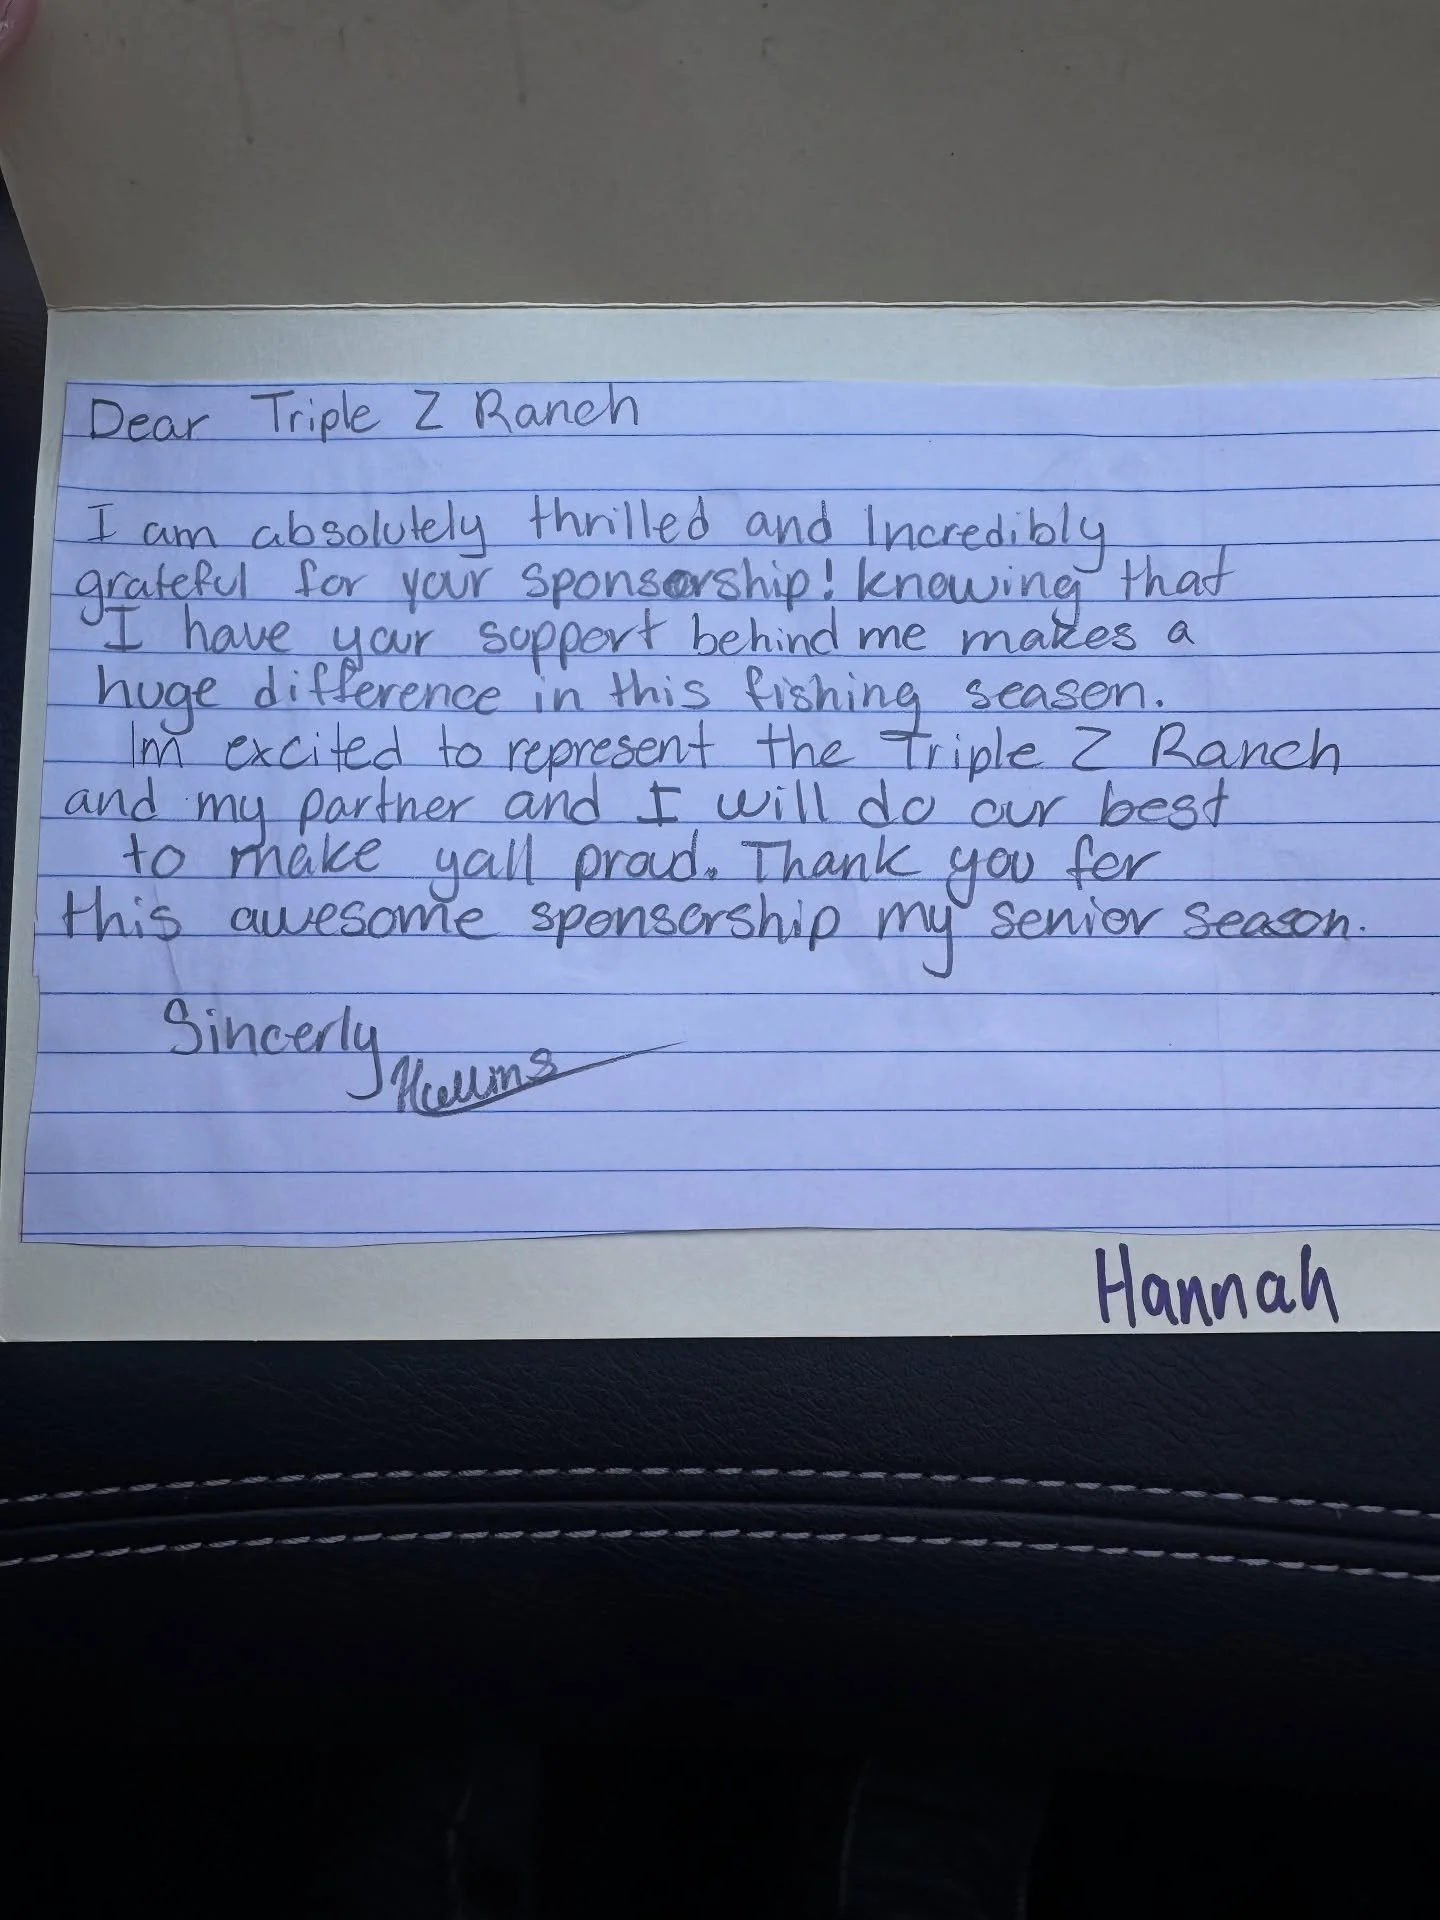 Dear Triple Z Ranch
I am absolutely thrilled and Incredibly
grateful for your sponsorship! knowing that
I have your support behind me makes a
huge difference in this fishing season.
Im excited to represent the Triple Z Ranch
and my partner and I will do our best
to make yall proud. Thank you for
this awesome sponsorship my senior season.
Sincerly
Hannah